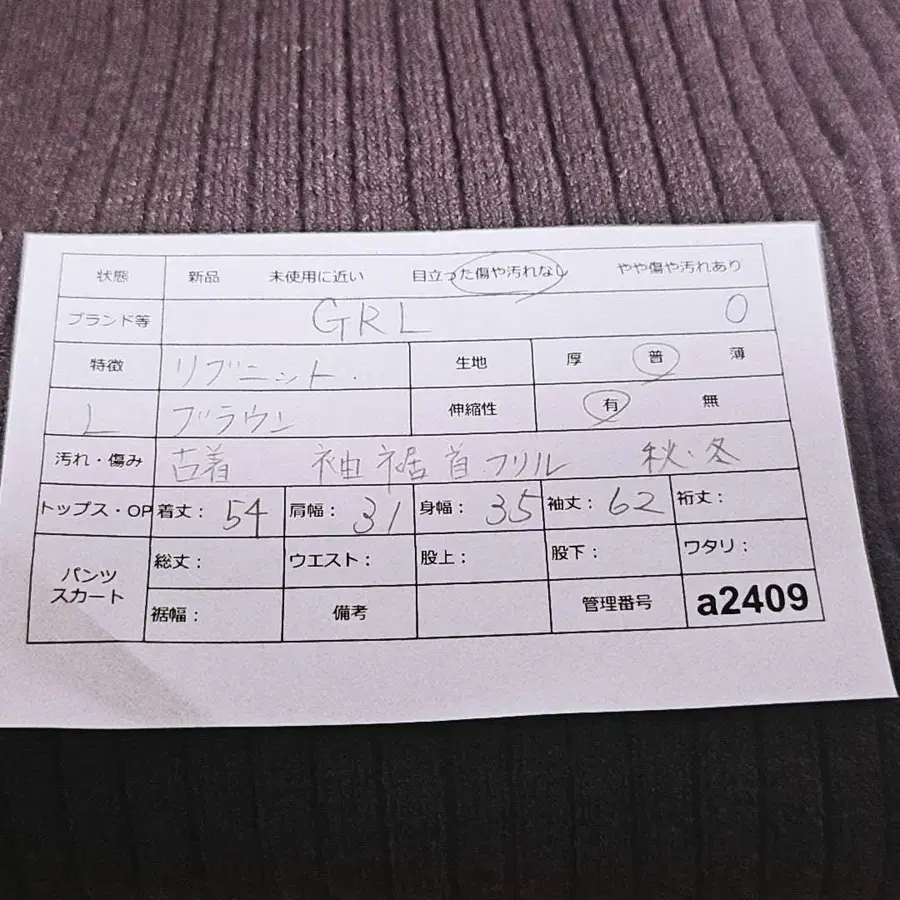 状態 新品 未使用に近い 目立った傷や汚れなし やや傷や汚れあり
ブランド等 GRL 0
特徴 リブニット. 生地 厚 普 薄
L ブラウン 伸縮性 有 無
汚れ・傷み 古着 袖裾首フリル 秋・冬
トップス・OP 着丈: 54 肩幅: 31 身幅: 35 袖丈: 62 裄丈:
パンツ スカート 総丈: ウエスト: 股上: 股下: ワタリ:
裾幅: 備考 管理番号 a2409